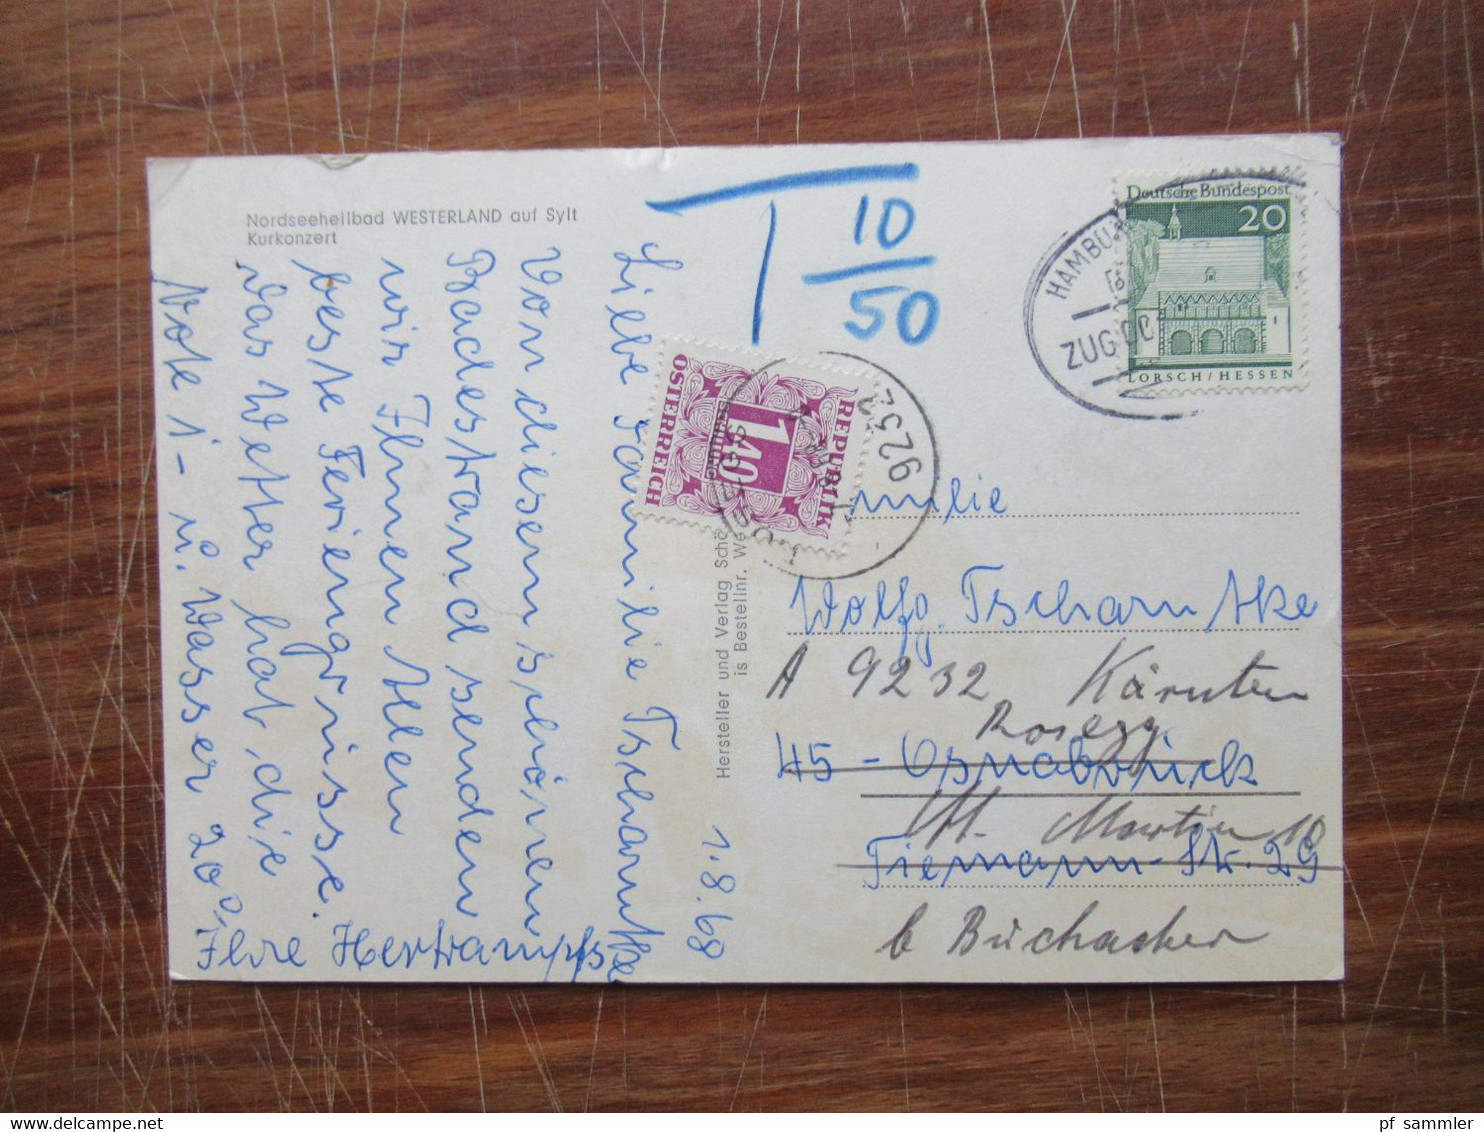 Nordseeheilbad WESTERLAND auf Sylt
Kurkonzert
1.8.68
Liebe Familie Tscharntke
Von diesem schönen
Badestrand senden
wir Ihnen Allen
beste Feriengrüsse.
das Wetter hat die
Note 1 - u. Wasser 20°,
Ihre Hertrampfs
Hersteller und Verlag Schö
is Bestellnr. We
T 10
50
Deutsche Bundespost
20
LORSCH/HESSEN
HAMBU
ZUG 00
REPUBLIK
1.40
ÖSTERREICH
9232
milie
Wolfg. Tscharntke
A 9232 Kärnten
Rosegg
45 - Osnabrück
St. Martin 10
Tiemann-Str. 29
b Buchacher
pf sammler